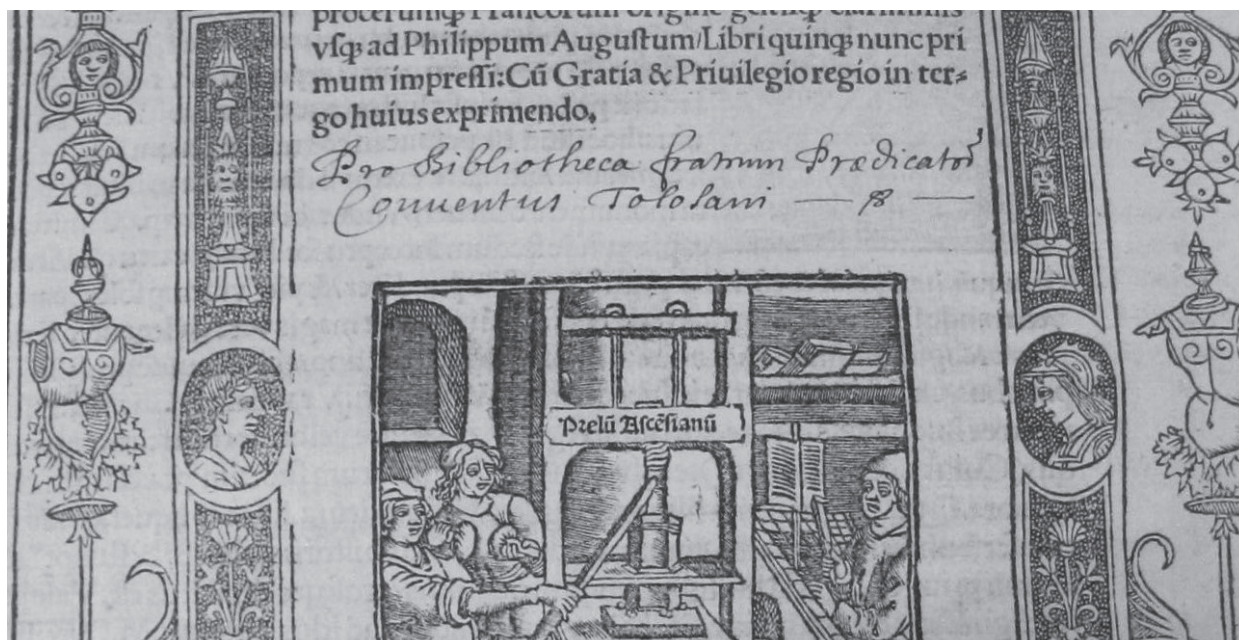 procerumq; Francorum origine gestisq; clarissimis
vſq; ad Philippum Auguſtum/Libri quinq; nunc pri
mum impreſſi: Cū Gratia & Priuilegio regio in ter⸗
go huius exprimendo.
Pro Bibliotheca fratrum Prædicator
Conventus Tolosani
Prelū Aſcēſianū